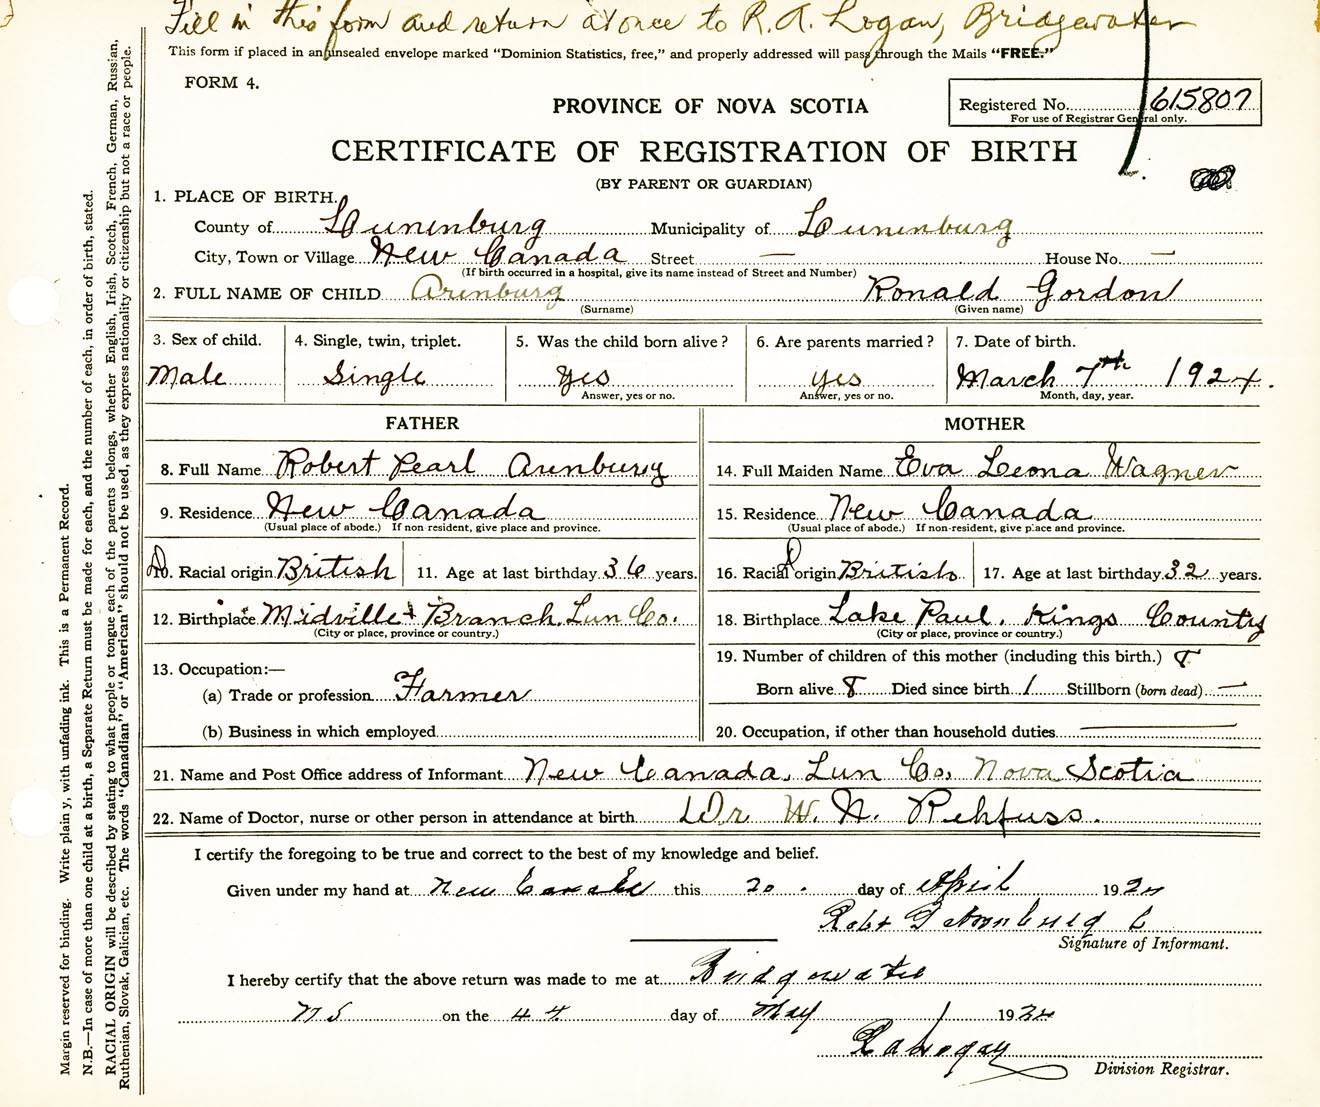 Fill in this form and return at once to R. A. Logan, Bridgewater
This form if placed in an unsealed envelope marked "Dominion Statistics, free," and properly addressed will pass through the Mails "FREE."
FORM 4.
PROVINCE OF NOVA SCOTIA
Registered No. 615807
For use of Registrar General only.
CERTIFICATE OF REGISTRATION OF BIRTH
(BY PARENT OR GUARDIAN)
1. PLACE OF BIRTH.
County of Lunenburg Municipality of Lunenburg
City, Town or Village New Canada Street — House No. —
(If birth occurred in a hospital, give its name instead of Street and Number)
2. FULL NAME OF CHILD Arenburg Ronald Gordon
(Surname) (Given name)
3. Sex of child. 4. Single, twin, triplet. 5. Was the child born alive? 6. Are parents married? 7. Date of birth.
Male Single Yes yes March 7th 1924.
Answer, yes or no. Answer, yes or no. Month, day, year.
FATHER MOTHER
8. Full Name Robert Pearl Arenburg 14. Full Maiden Name Eva Leona Wagner
9. Residence New Canada 15. Residence New Canada
(Usual place of abode.) If non resident, give place and province. (Usual place of abode.) If non-resident, give place and province.
10. Racial origin British 11. Age at last birthday 36 years. 16. Racial origin British 17. Age at last birthday 32 years.
12. Birthplace Midville Branch Lun Co. 18. Birthplace Lake Paul. Kings County
(City or place, province or country.) (City or place, province or country.)
13. Occupation:— 19. Number of children of this mother (including this birth.) 8
(a) Trade or profession Farmer Born alive 8 Died since birth 1 Stillborn (born dead) —
(b) Business in which employed 20. Occupation, if other than household duties —
21. Name and Post Office address of Informant New Canada, Lun Co, Nova Scotia
22. Name of Doctor, nurse or other person in attendance at birth Dr W. N. Rehfuss.
I certify the foregoing to be true and correct to the best of my knowledge and belief.
Given under my hand at New Canada this 20. day of April 1924
Robt P Arenburg
Signature of Informant.
I hereby certify that the above return was made to me at Bridgewater
N S on the day of May 1924
R A Logan
Division Registrar.
Margin reserved for binding. Write plainly, with unfading ink. This is a Permanent Record.
N.B.—In case of more than one child at a birth, a Separate Return must be made for each, and the number of each, in order of birth, stated.
RACIAL ORIGIN will be described by stating to what people or tongue each of the parents belongs, whether English, Irish, Scotch, French, German, Russian,
Ruthenian, Slovak, Galician, etc. The words "Canadian" or "American" should not be used, as they express nationality or citizenship but not a race or people.